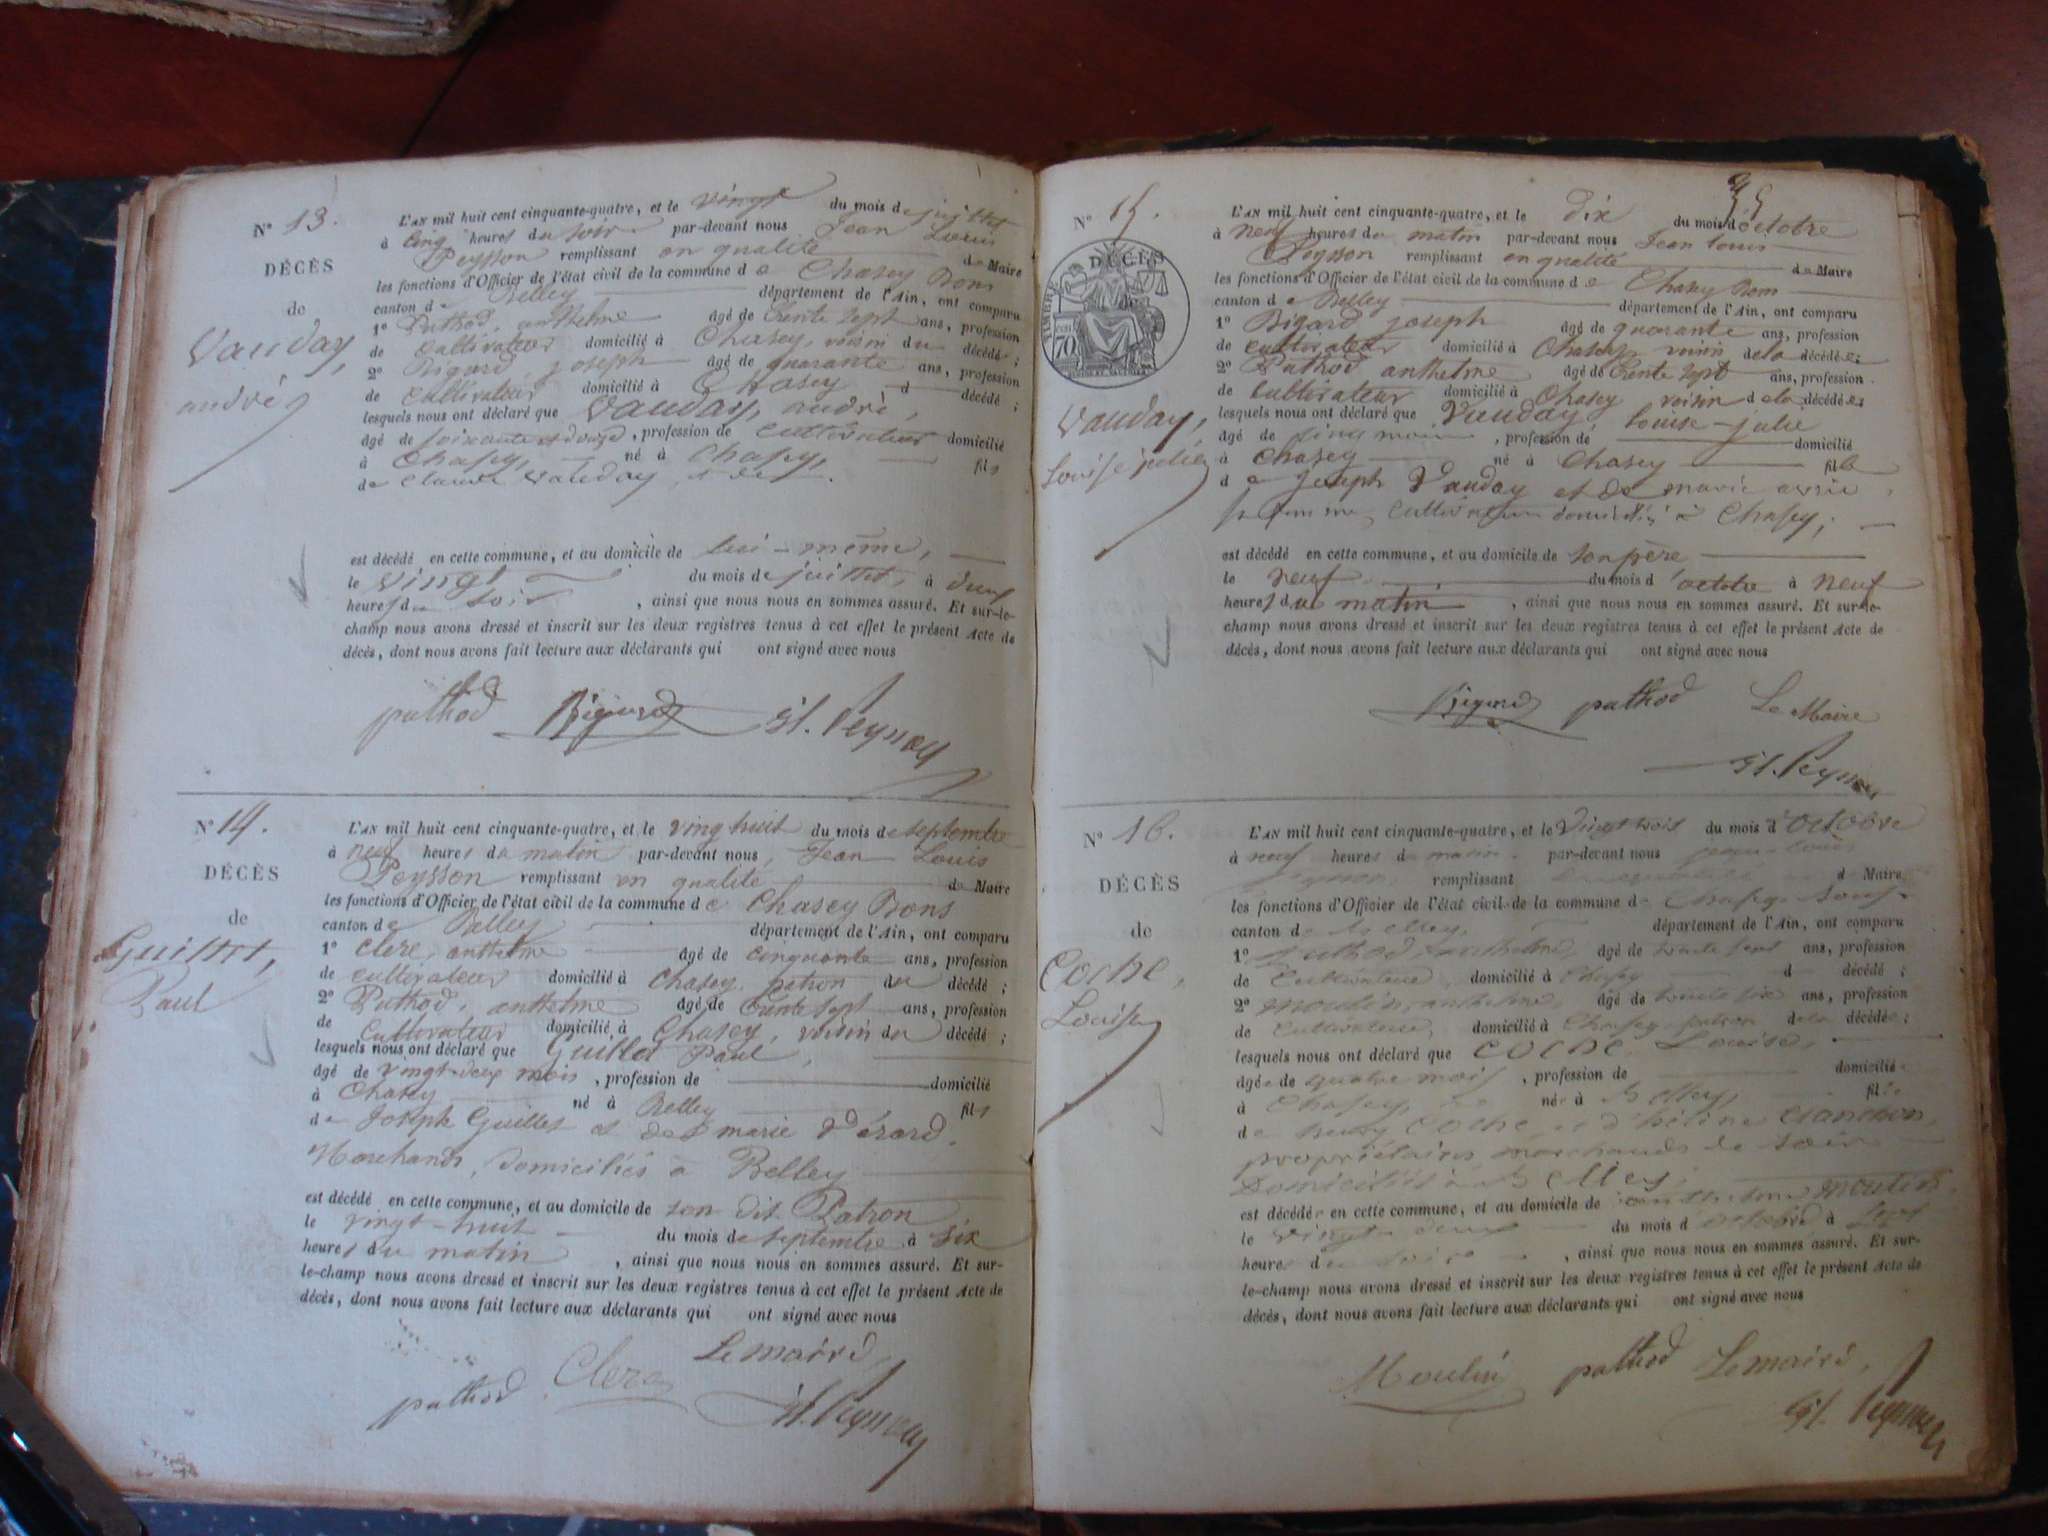 N° 13.
DÉCÈS
de
Vauday,
andré
L'AN mil huit cent cinquante-quatre, et le vingt du mois de juillet
à cinq heures du soir par-devant nous Jean Louis
Peysson remplissant en qualité de Maire
les fonctions d'Officier de l'état civil de la commune de Chasey Bons
canton de Belley département de l'Ain, ont comparu
1° Puthod, anthelme âgé de trente sept ans, profession
de cultivateur domicilié à Chasey, voisin du décédé;
2° Bigard joseph âgé de quarante ans, profession
de cultivateur domicilié à Chasey d décédé;
lesquels nous ont déclaré que Vauday, andré,
âgé de soixante et douze, profession de cultivateur domicilié
à Chasey, né à Chasey, fils
de Claude Vauday et de
est décédé en cette commune, et au domicile de lui-même,
le vingt du mois de juillet, à deux
heures du soir, ainsi que nous nous en sommes assuré. Et sur-le-
champ nous avons dressé et inscrit sur les deux registres tenus à cet effet le présent Acte de
décès, dont nous avons fait lecture aux déclarants qui ont signé avec nous
puthod Bigard
N° 14.
DÉCÈS
de
Guillot,
Paul
L'AN mil huit cent cinquante-quatre, et le vingt huit du mois de septembre
à neuf heures du matin par-devant nous, Jean Louis
Peysson remplissant en qualité de Maire
les fonctions d'Officier de l'état civil de la commune de Chasey Bons
canton de Belley département de l'Ain, ont comparu
1° Clerc, anthelme âgé de cinquante ans, profession
de cultivateur domicilié à Chasey, patron du décédé;
2° Puthod, anthelme âgé de trente sept ans, profession
de cultivateur domicilié à Chasey, voisin du décédé;
lesquels nous ont déclaré que Guillot Paul,
âgé de vingt-deux mois, profession de domicilié
à Chasey né à Belley fils
de Joseph Guillot et de marie Vérard,
Marchands, domiciliés à Belley
est décédé en cette commune, et au domicile de son dit Patron
le vingt-huit du mois de septembre à six
heures du matin, ainsi que nous nous en sommes assuré. Et sur-
le-champ nous avons dressé et inscrit sur les deux registres tenus à cet effet le présent Acte de
décès, dont nous avons fait lecture aux déclarants qui ont signé avec nous
Le maire,
puthod Clerc
35
N° 15.
TIMBRE
70
DÉCÈS
Vauday,
Louise julie
L'AN mil huit cent cinquante-quatre, et le dix du mois d'octobre
à neuf heures du matin par-devant nous Jean louis
Peysson remplissant en qualité de Maire
les fonctions d'Officier de l'état civil de la commune de Chasey Bons
canton de Belley département de l'Ain, ont comparu
1° Bigard joseph âgé de quarante ans, profession
de cultivateur domicilié à Chasey voisin de la décédée;
2° Puthod anthelme âgé de trente sept ans, profession
de cultivateur domicilié à Chasey voisin de la décédée;
lesquels nous ont déclaré que Vauday louise-julie
âgé de cinq mois, profession de domicilié
à Chasey né à Chasey fille
de Joseph Vauday et de marie
sa femme, cultivateurs domiciliés à Chasey;
est décédé en cette commune, et au domicile de son père,
le neuf du mois d'octobre à neuf
heures du matin, ainsi que nous nous en sommes assuré. Et sur-le-
champ nous avons dressé et inscrit sur les deux registres tenus à cet effet le présent Acte de
décès, dont nous avons fait lecture aux déclarants qui ont signé avec nous
Bigard puthod Le Maire
N° 16.
DÉCÈS
de
Coche,
Louise
L'AN mil huit cent cinquante-quatre, et le vingt trois du mois d'octobre
à neuf heures du matin par-devant nous jean-louis
Peysson, remplissant en qualité d Maire
les fonctions d'Officier de l'état civil de la commune de Chasey Bons
canton de Belley, département de l'Ain, ont comparu
1° Puthod, anthelme, âgé de trente sept ans, profession
de Cultivateur, domicilié à Chasey d décédé;
2° Moulin, anthelme, âgé de trente six ans, profession
de Cultivateur, domicilié à Chasey patron de la décédée;
lesquels nous ont déclaré que Coche, Louise,
âgée de quatre mois, profession de domiciliée
à Chasey, née à Belley, fille
de Coche, et d'hélène
propriétaires marchands de
Domiciliés à Belley,
est décédée en cette commune, et au domicile de anthelme Moulin,
le vingt deux du mois d'octobre à
heures du soir, ainsi que nous nous en sommes assuré. Et sur-
le-champ nous avons dressé et inscrit sur les deux registres tenus à cet effet le présent Acte de
décès, dont nous avons fait lecture aux déclarants qui ont signé avec nous
Moulin puthod Le maire,